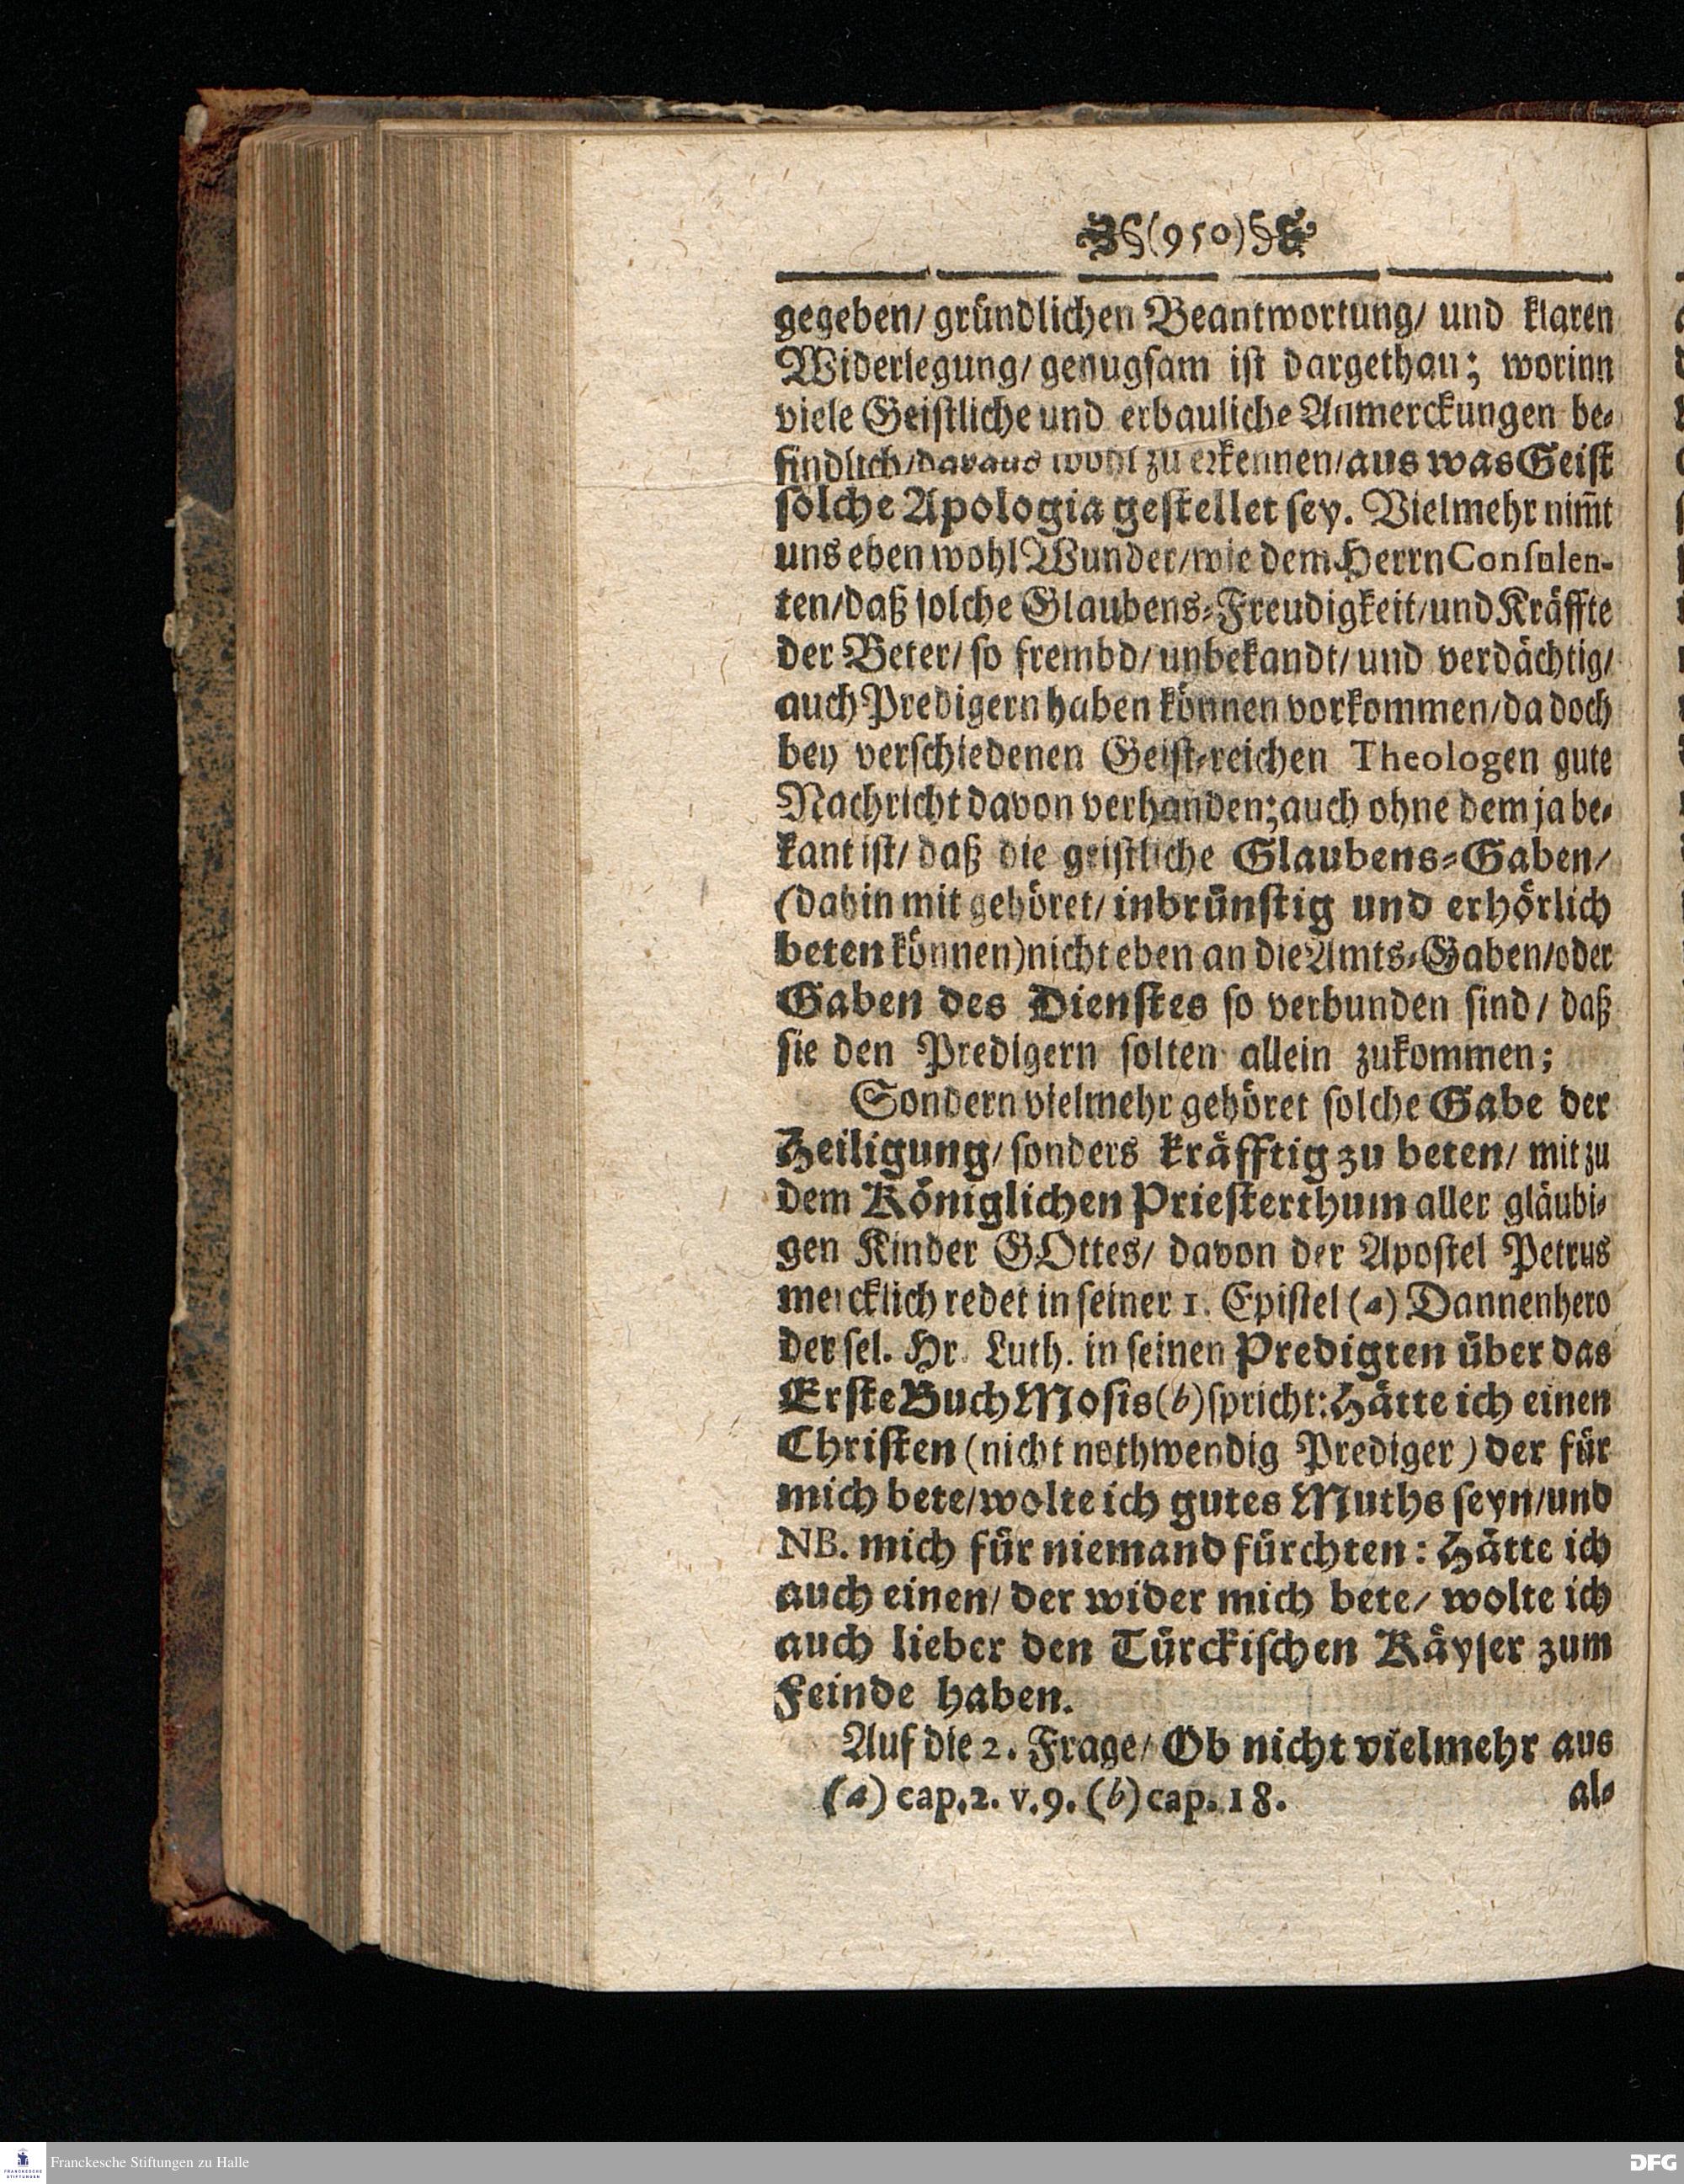 (950)
gegeben/ gründlichen Beantwortung/ und klaren
Widerlegung/ genugsam ist dargethan; worinn
viele Geistliche und erbauliche Anmerckungen be-
findlich/ daraus wohl zu erkennen/ aus was Geist
solche Apologia gestellet sey. Vielmehr nim̃t
uns eben wohl Wunder/ wie dem Herrn Consulen-
ten/ daß solche Glaubens-Freudigkeit/ und Kräffte
der Beter/ so frembd/ unbekandt/ und verdächtig/
auch Predigern haben können vorkommen/ da doch
bey verschiedenen Geist-reichen Theologen gute
Nachricht davon verhanden; auch ohne dem ja be-
kant ist/ daß die geistliche Glaubens-Gaben/
(dahin mit gehöret/ inbrünstig und erhörlich
beten können) nicht eben an die Amts-Gaben/ oder
Gaben des Dienstes so verbunden sind/ daß
sie den Predigern solten allein zukommen;
Sondern vielmehr gehöret solche Gabe der
Heiligung/ sonders kräfftig zu beten/ mit zu
dem Königlichen Priesterthum aller gläubi-
gen Kinder GOttes/ davon der Apostel Petrus
mercklich redet in seiner 1. Epistel (a) Dannenhero
der sel. Hr. Luth. in seinen Predigten über das
Erste Buch Mosis (b) spricht: Hätte ich einen
Christen (nicht nothwendig Prediger) der für
mich bete/ wolte ich gutes Muths seyn/ und
NB. mich für niemand fürchten: Hätte ich
auch einen/ der wider mich bete/ wolte ich
auch lieber den Türckischen Käyser zum
Feinde haben.
Auf die 2. Frage/ Ob nicht vielmehr aus
(a) cap. 2. v. 9. (b) cap. 18. al-
FRANCKESCHE STIFTUNGEN
Franckesche Stiftungen zu Halle
DFG